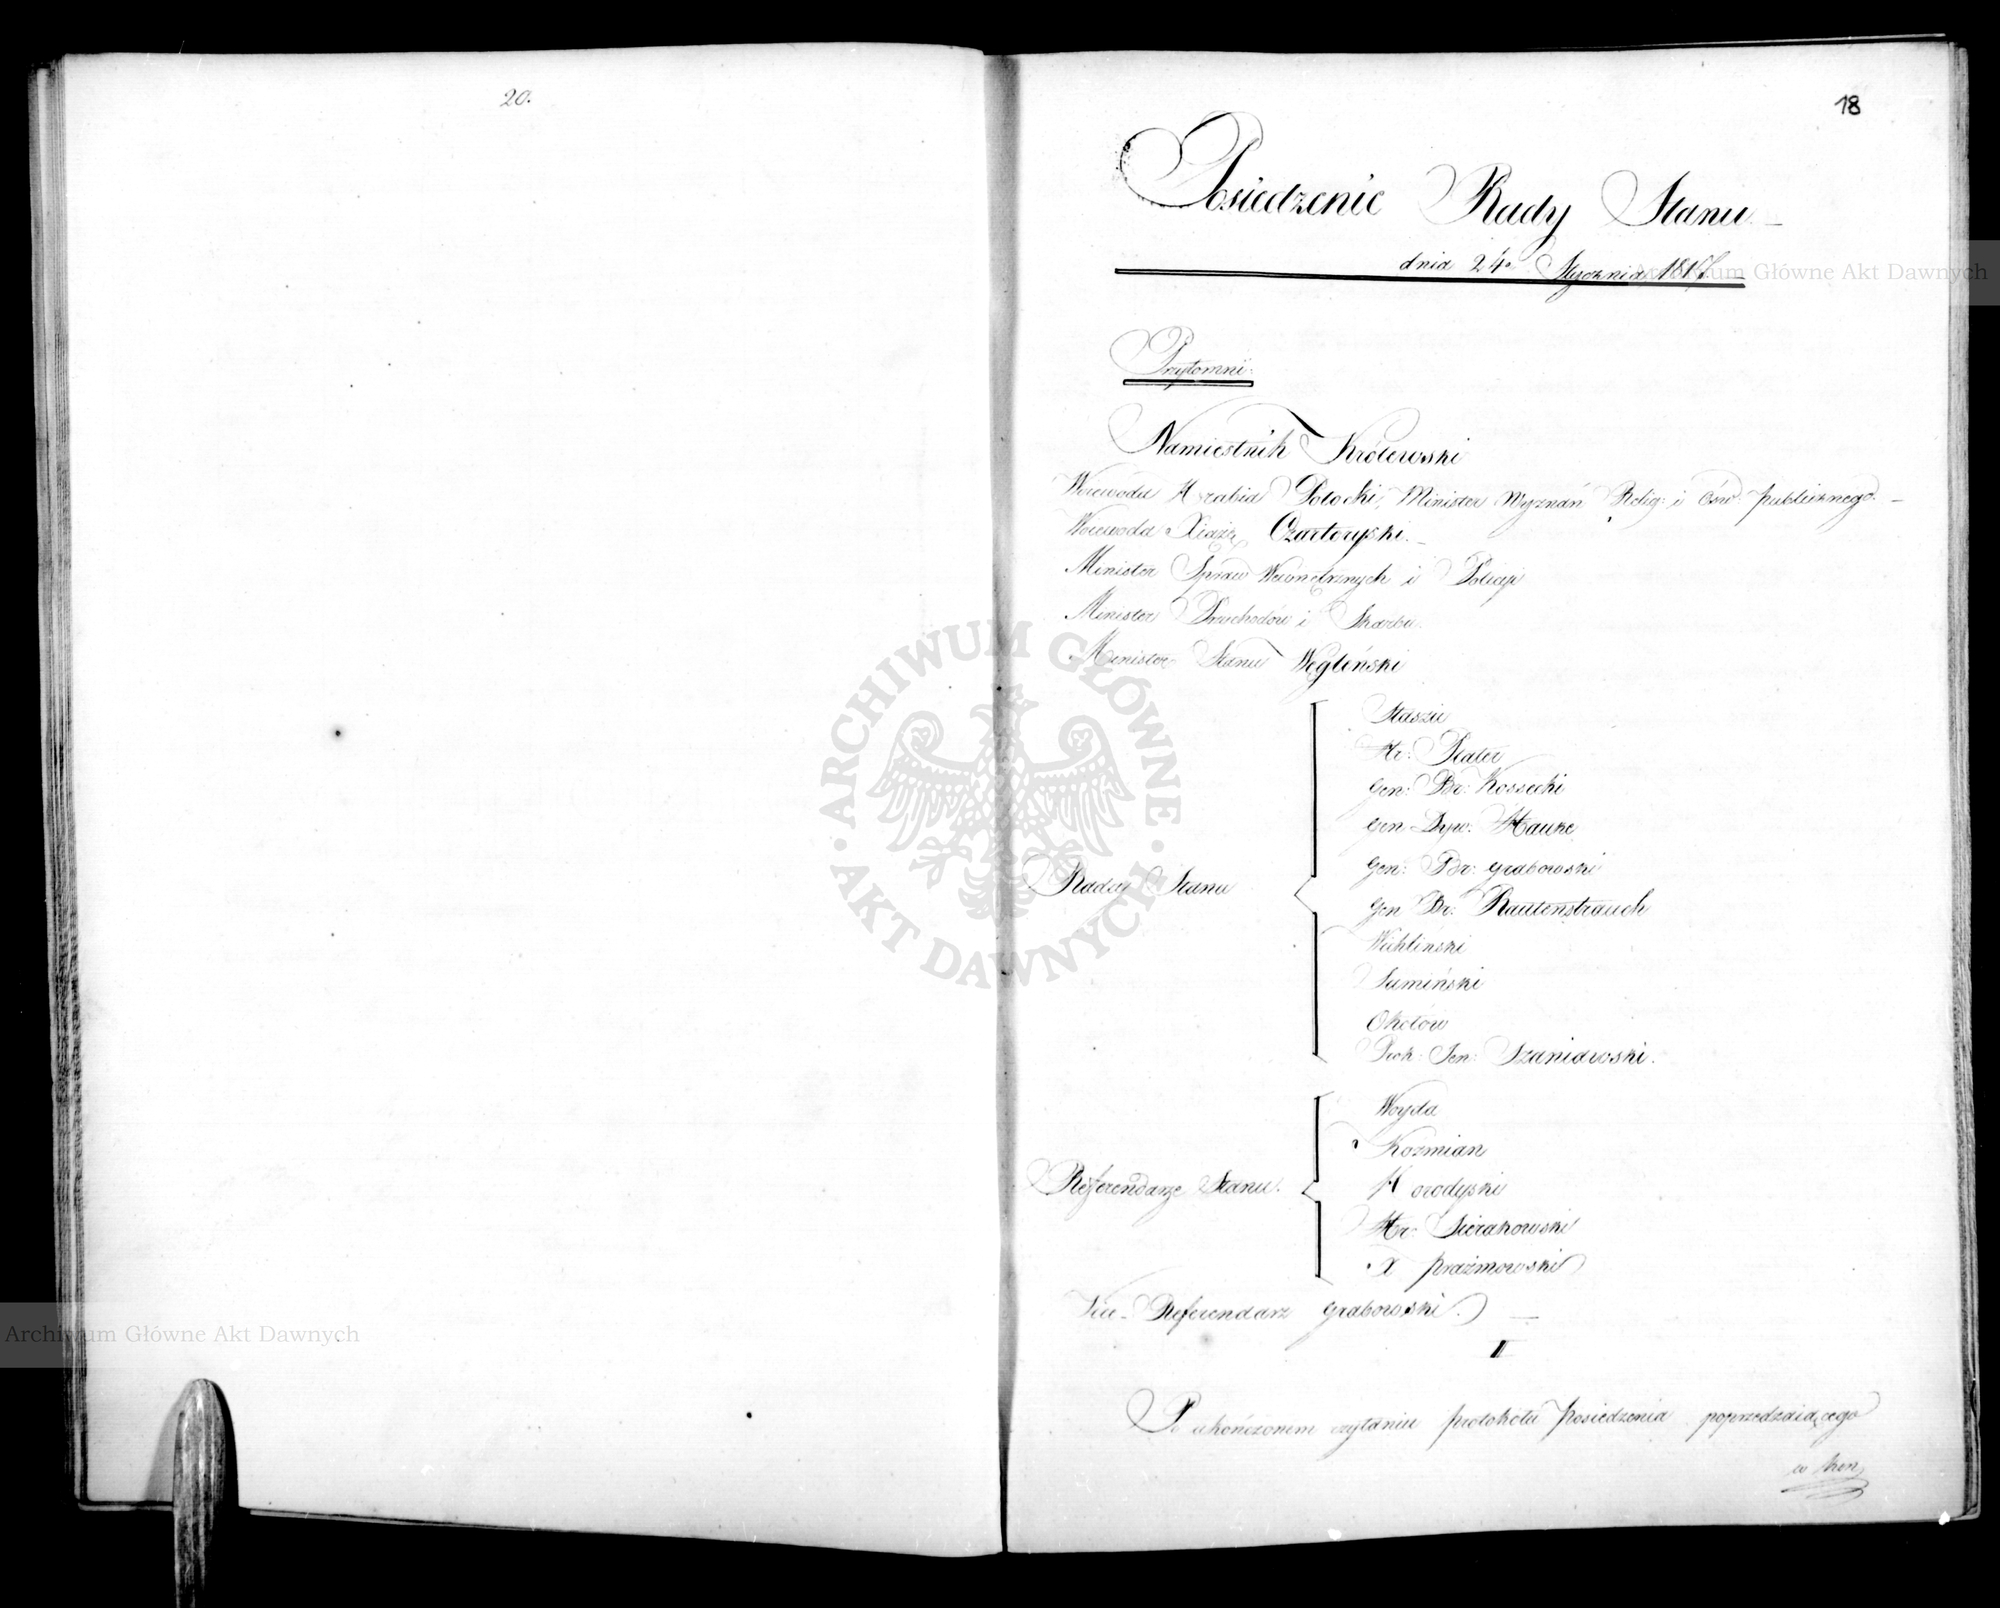 20.
18
Posiedzenie Rady Stanu.
dnia 24o Stycznia 1817.
Przytomni.
Namiestnik Królewski
Woiewoda Hrabia Potocki, Minister Wyznań Relig: i Ośw: publicznego.
Woiewoda Xiąże Czartoryski.
Minister Spraw Wewnętrznych i Policyi
Minister Przychodów i Skarbu.
Minister Stanu Węgleński
Staszic
Hr: Plater
Gen: Br: Kossecki
Gen Dyw: Hauke
Gen: Br: Grabowski
Radcy Stanu
Gen Br: Rautenstrauch
Wichliński
Sumiński
Okołow
Prok: Jen: Szaniawski.
Woyda
Koźmian
Referendarze Stanu.
Horodyski
Hr: Sierakowski
X Prażmowski
Vice-Referendarz Grabowski.
Po ukończonem czytaniu protokołu posiedzenia poprzedzaiącego
Archiwum Główne Akt Dawnych
ARCHIWUM GŁÓWNE AKT DAWNYCH
Archiwum Główne Akt Dawnych